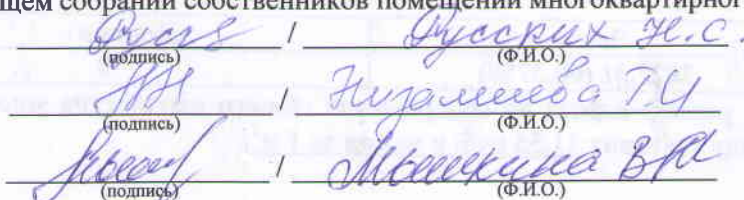 щем собрании собственников помещений многоквартирног
/ Русских Н.С.
(подпись) (Ф.И.О.)
/ Низамиева Г.
(подпись) (Ф.И.О.)
/ Мышкина
(подпись) (Ф.И.О.)